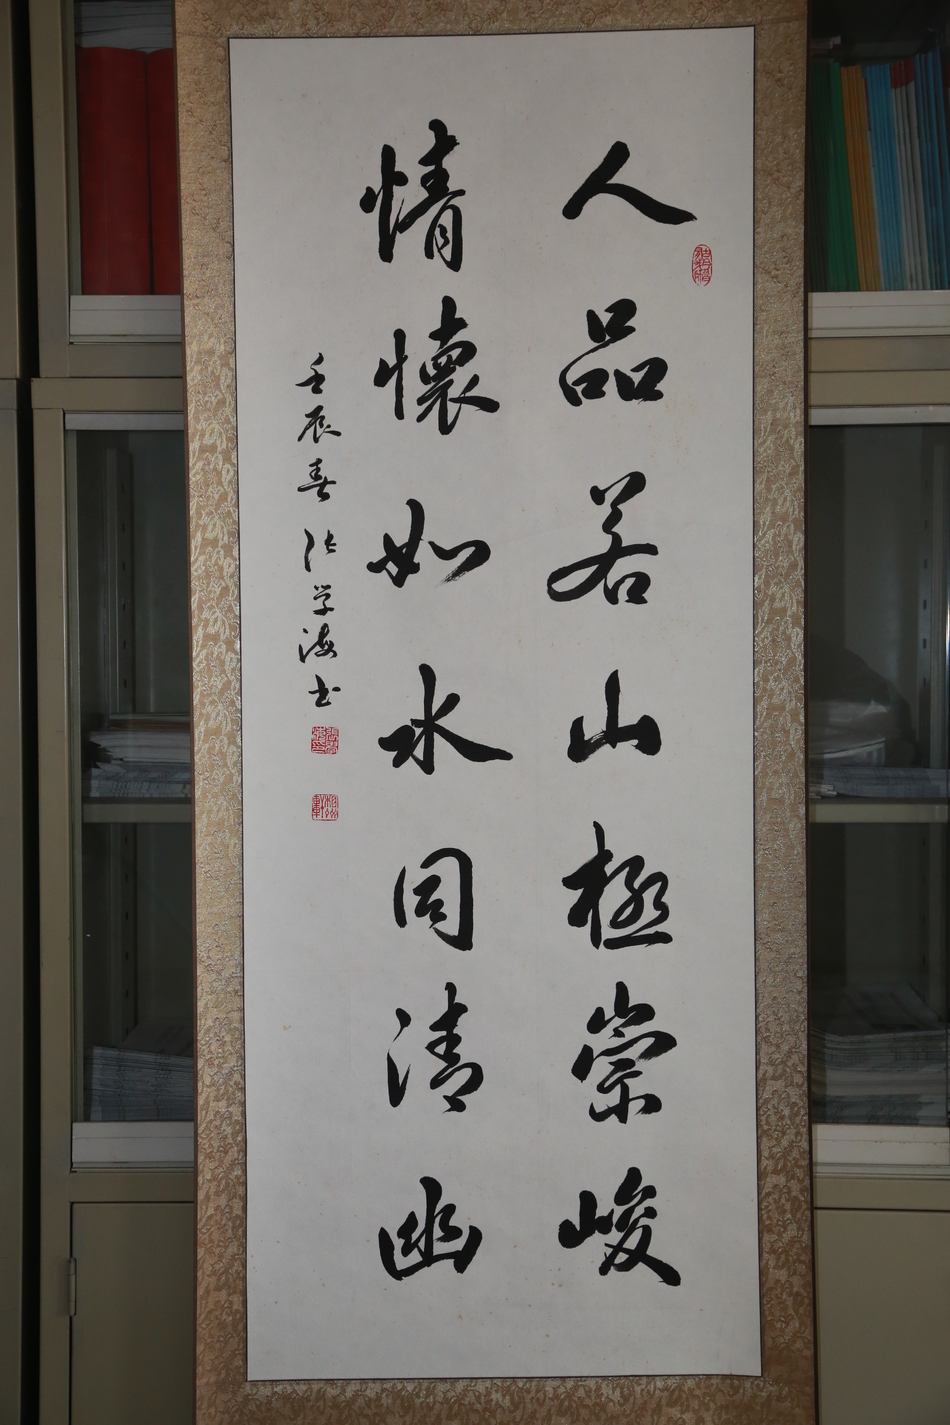 人品若山極崇峻
情懷如水同清幽
壬辰春 张学海书